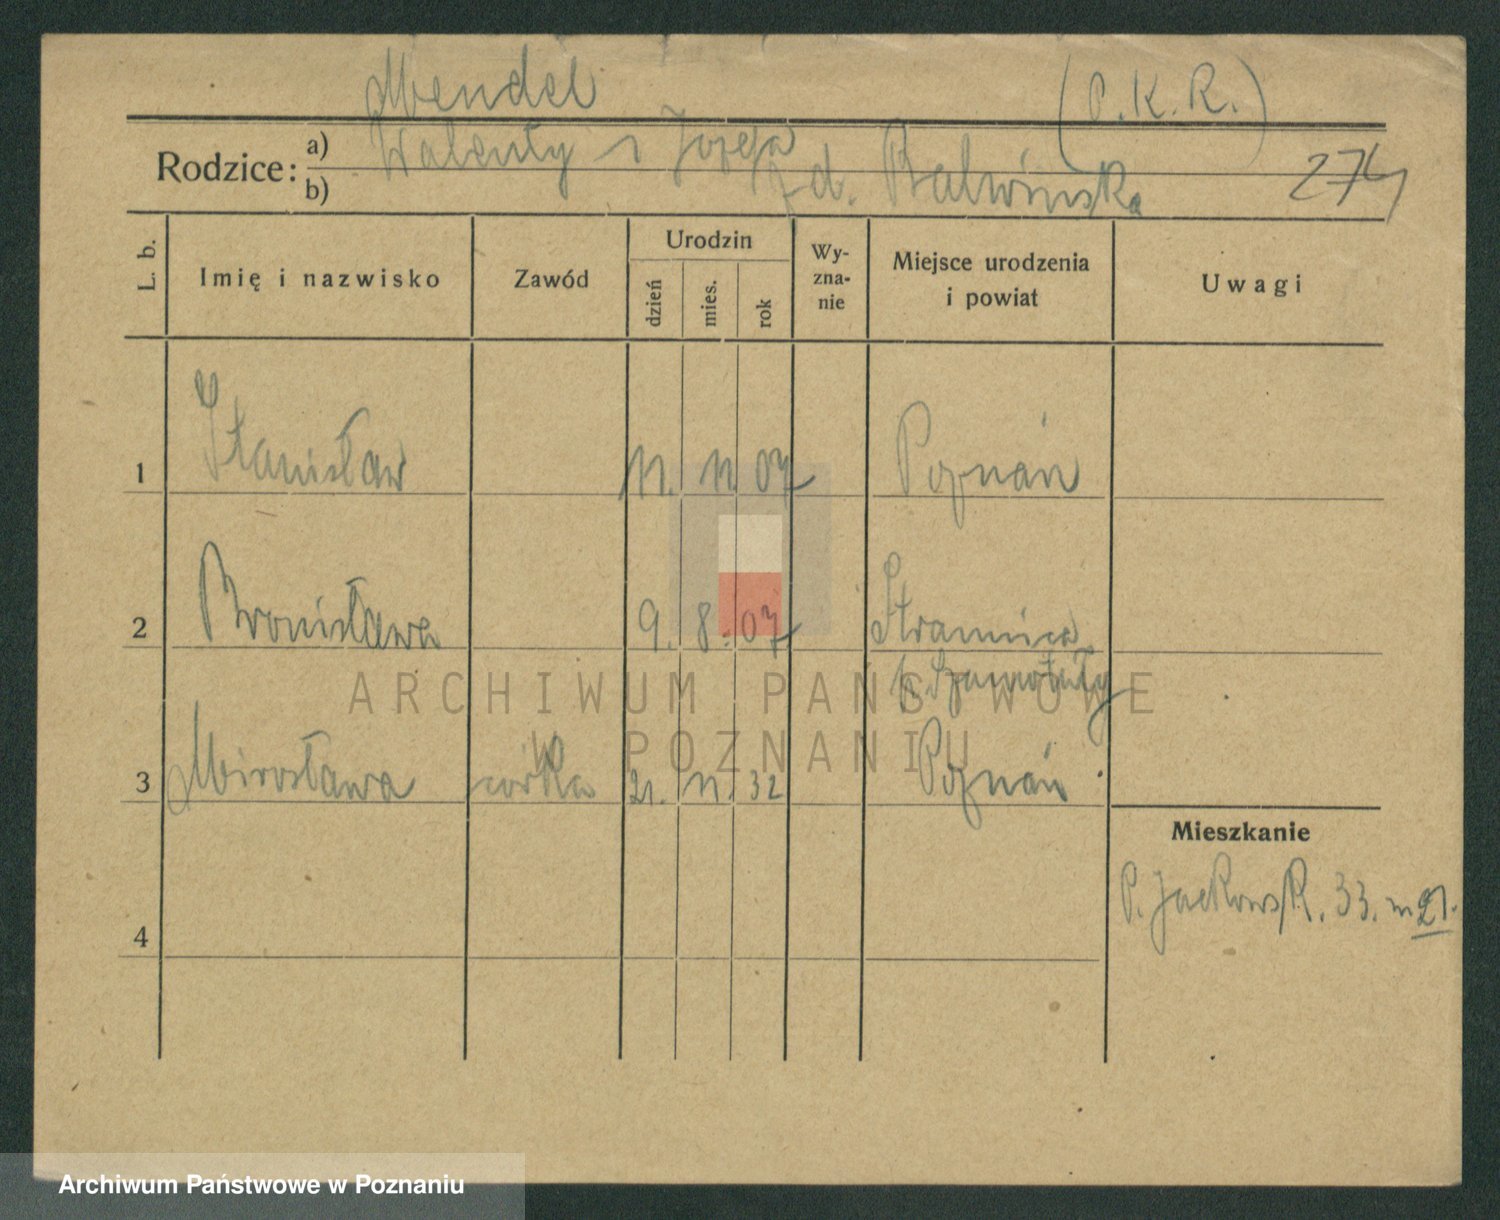 Mendel (P.K.R.)
Rodzice: a) Walenty i Józefa
b) zd. Balwińska 274
L. b. Imię i nazwisko Zawód Urodzin dzień mies. rok Wy-zna-nie Miejsce urodzenia i powiat Uwagi
1 Stanisław 11. 11. 07 Poznań
2 Bronisława 9. 8. 07 Stramnica
p. Szamotuły
3 Mirosława córka 21. 11. 32 Poznań
Mieszkanie
P. Jackowsk. 33. m 21.
4
ARCHIWUM PAŃSTWOWE
W POZNANIU
Archiwum Państwowe w Poznaniu